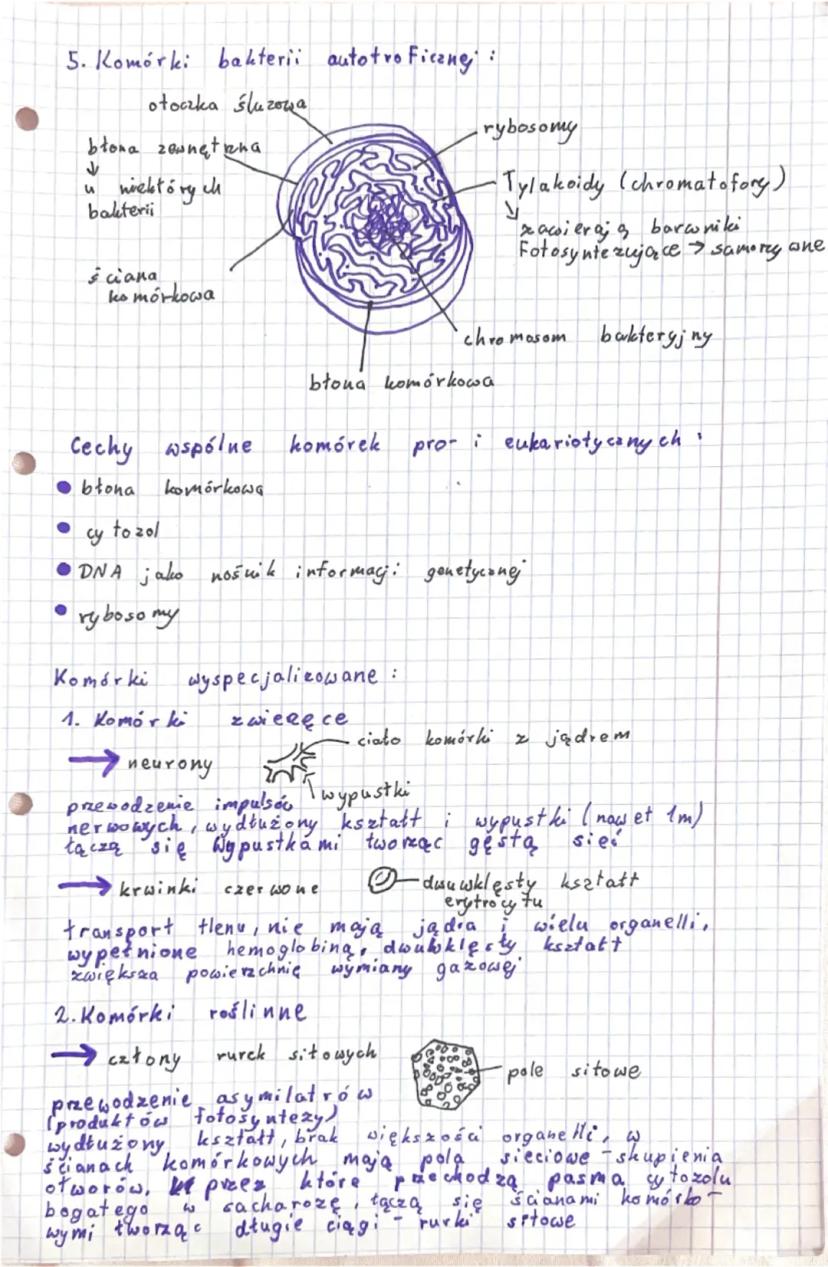 5. Komórki bakterii autotroficznej:
otoczka śluzowa
błona zewnętrzna
↓
u niektórych
bakterii
ściana
komórkowa
rybosomy
Tylakoidy (chromatofory)
↓
zawierają barwniki
fotosyntezujące → samorzywne
chromosom bakteryjny
błona komórkowa
Cechy wspólne komórek pro- i eukariotycznych:
• błona komórkowa
• cytozol
• DNA jako nośnik informacji genetycznej
• rybosomy
Komórki wyspecjalizowane:
1. Komórki zwierzęce
→ neurony
ciało komórki z jądrem
wypustki
przewodzenie impulsów
nerwowych, wydłużony kształt i wypustki (nawet 1m)
łączą się wypustkami tworząc gęstą sieć
→ krwinki czerwone
dwuwklęsty kształt
erytrocytu
transport tlenu, nie mają jądra i wielu organelli,
wypełnione hemoglobiną, dwuwklęsły kształt
zwiększa powierzchnię wymiany gazowej
2. Komórki roślinne
→ człony rurek sitowych
pole sitowe
przewodzenie asymilatrów
(produktów fotosyntezy)
wydłużony kształt, brak większości organelli, w
ścianach komórkowych mają pola sieciowe - skupienia
otworów, przez które przechodzą pasma cytozolu
bogatego w sacharozę, łączą się ścianami komórko-
wymi tworząc długie ciągi - rurki sitowe